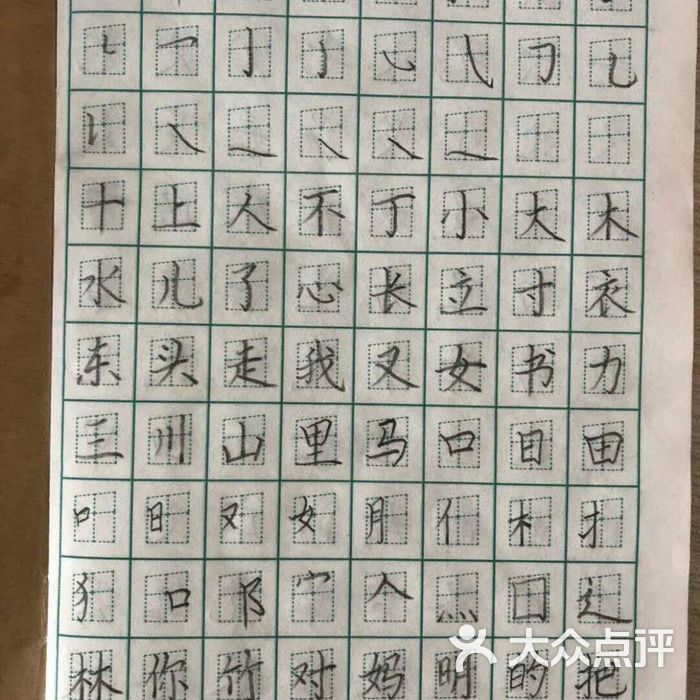 十上人不丁小大木
水儿了心长立寸衣
东头走我又女书力
三州山里马口目田
口日又女月亻木扌
犭口阝宀人灬囗辶
林你竹对妈明的把
大众点评